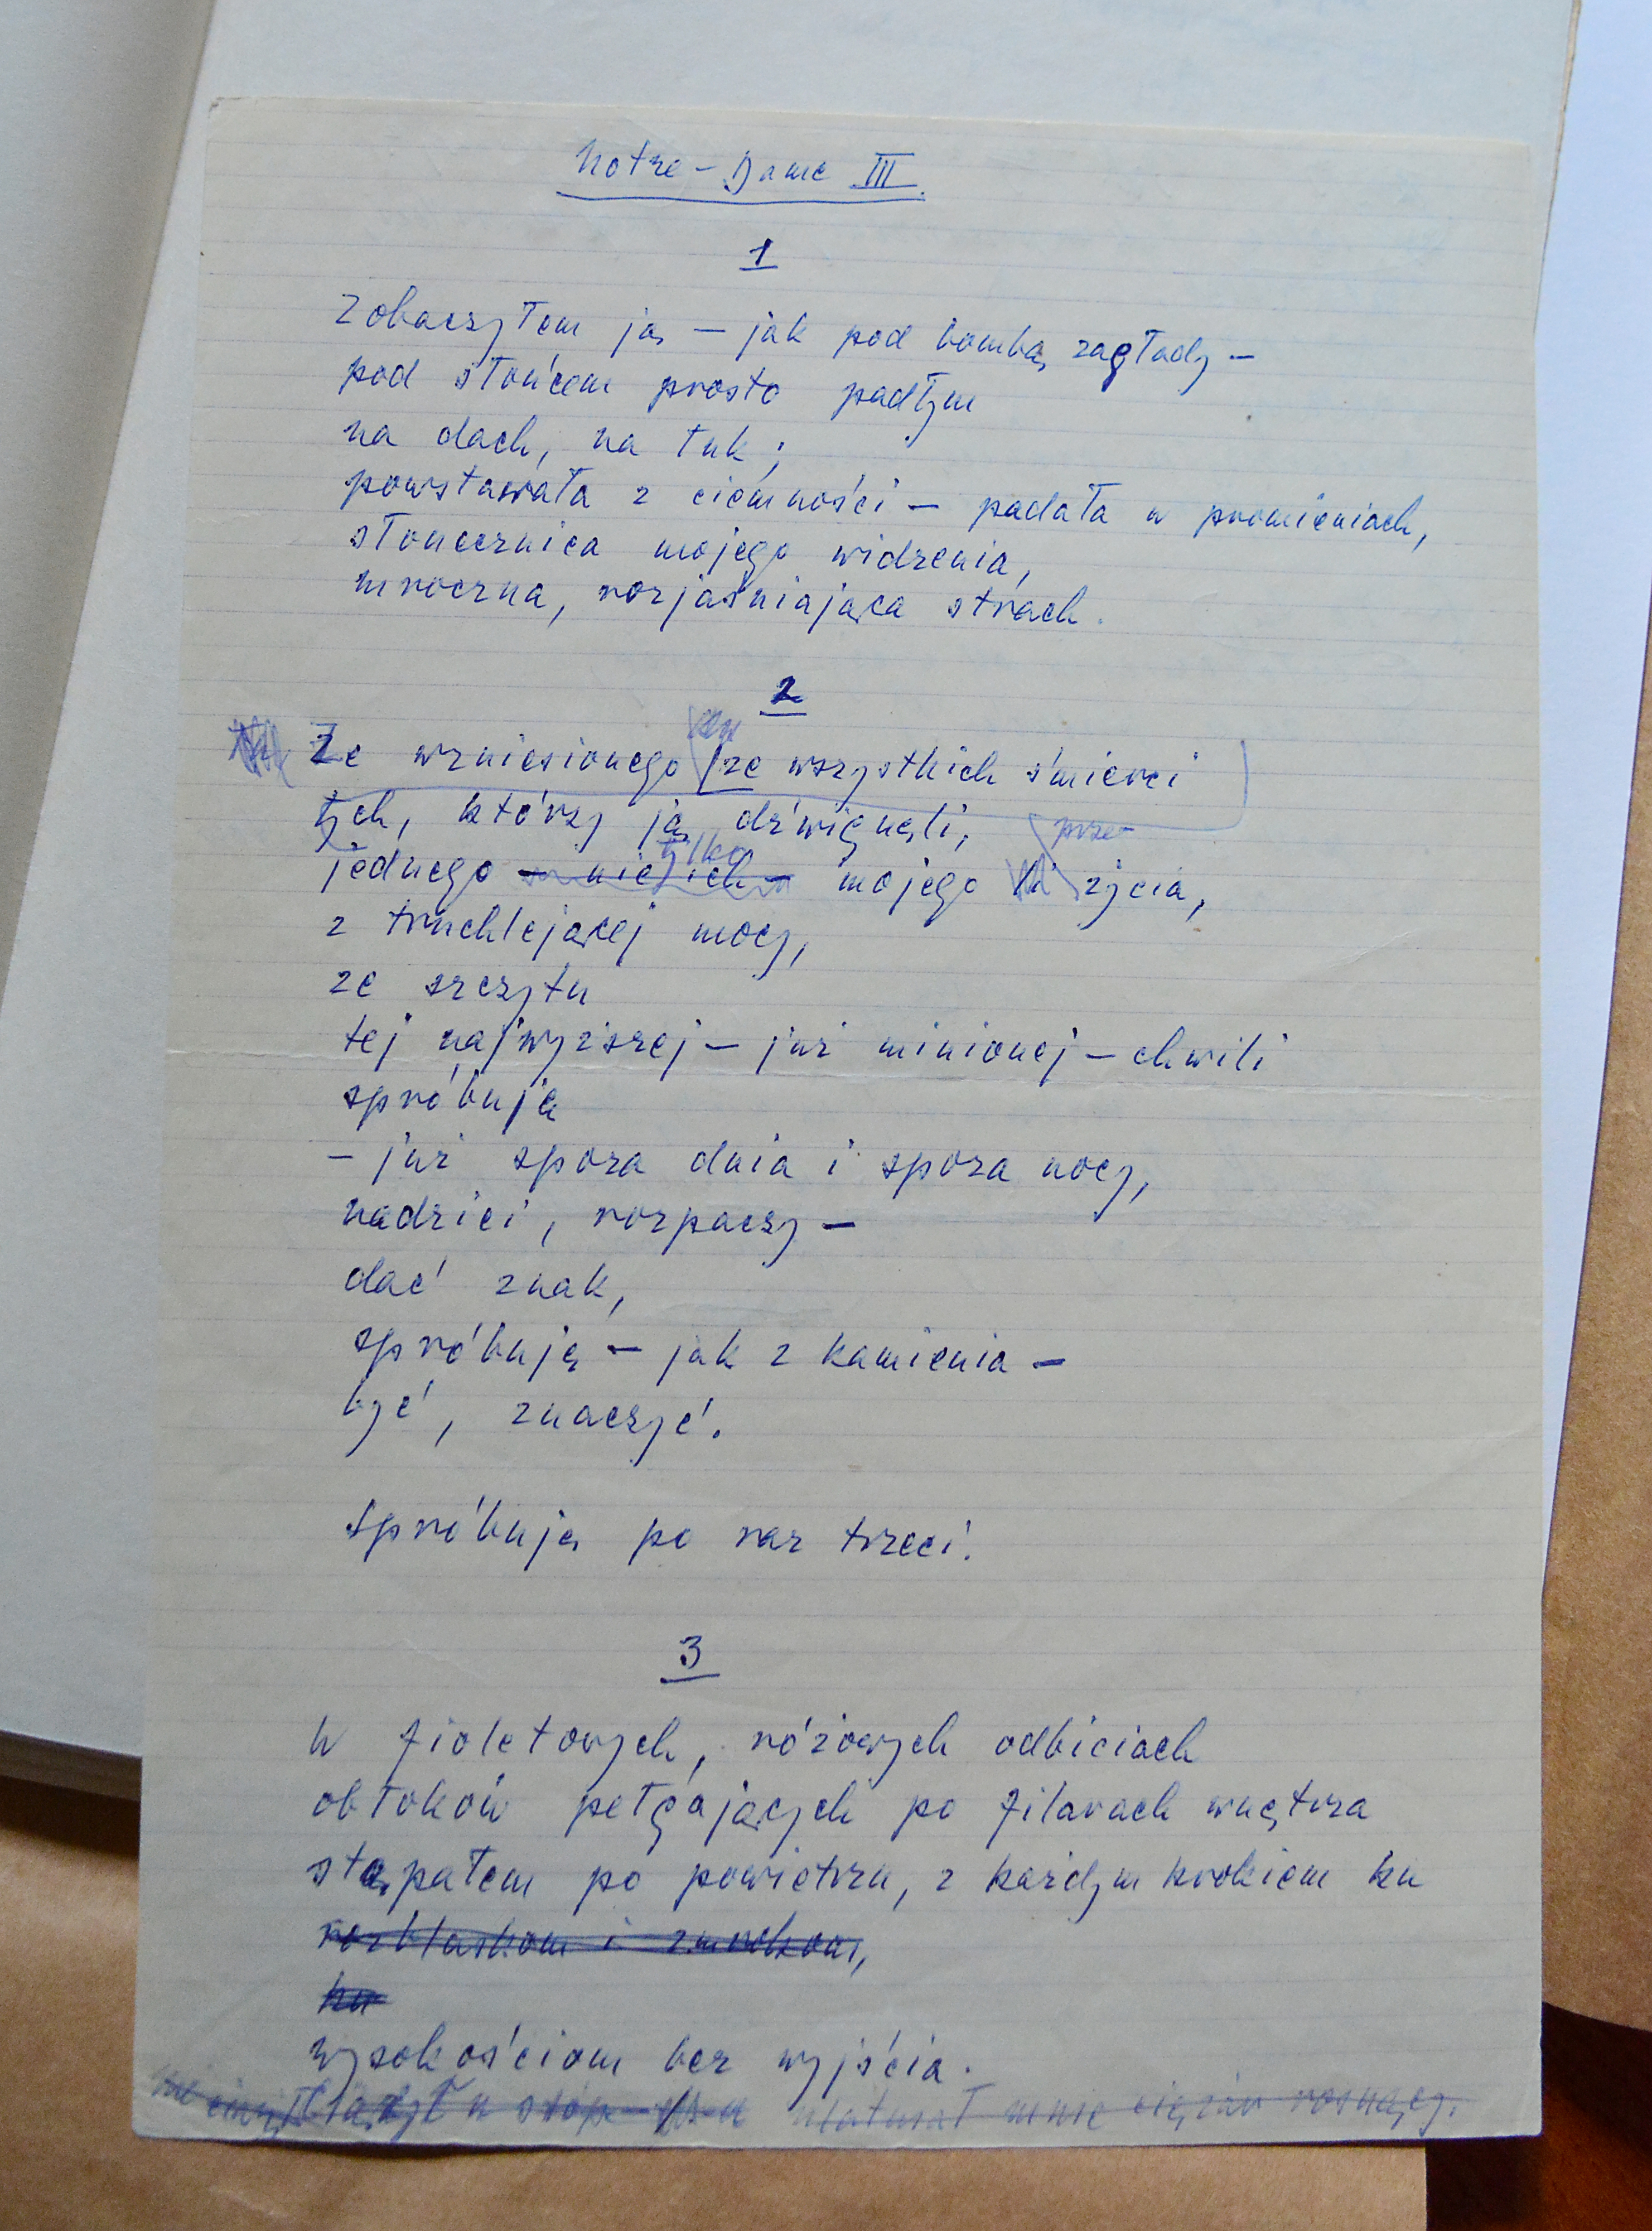 Notre-Dame III.
1
Zobaczyłem ją — jak pod bombą zagłady —
pod słońcem prosto padłym
na dach, na łuk;
powstawała z ciemności — padała w promieniach,
słonecznica mojego widzenia,
mroczna, rozjaśniająca strach.
2
Ze wzniesionego ze wszystkich śmierci
tych, którzy ją dźwignęli,
tylko prze
jednego — nie ich — mojego życia,
z truchlejącej mocy,
ze szczytu
tej najwyższej — już minionej — chwili
spróbuję
— już spoza dnia i spoza nocy,
nadziei, rozpaczy —
dać znak,
spróbuję — jak z kamienia —
być, znaczyć.
Spróbuję po raz trzeci.
3
W fioletowych, różowych odbiciach
obłoków pełgających po filarach wnętrza
stąpałem po powietrzu, z każdym krokiem ku
rozblaskom i zmrokom,
ku
wysokościom bez wyjścia.
ciążył u stóp mnie ciężar rosnący.